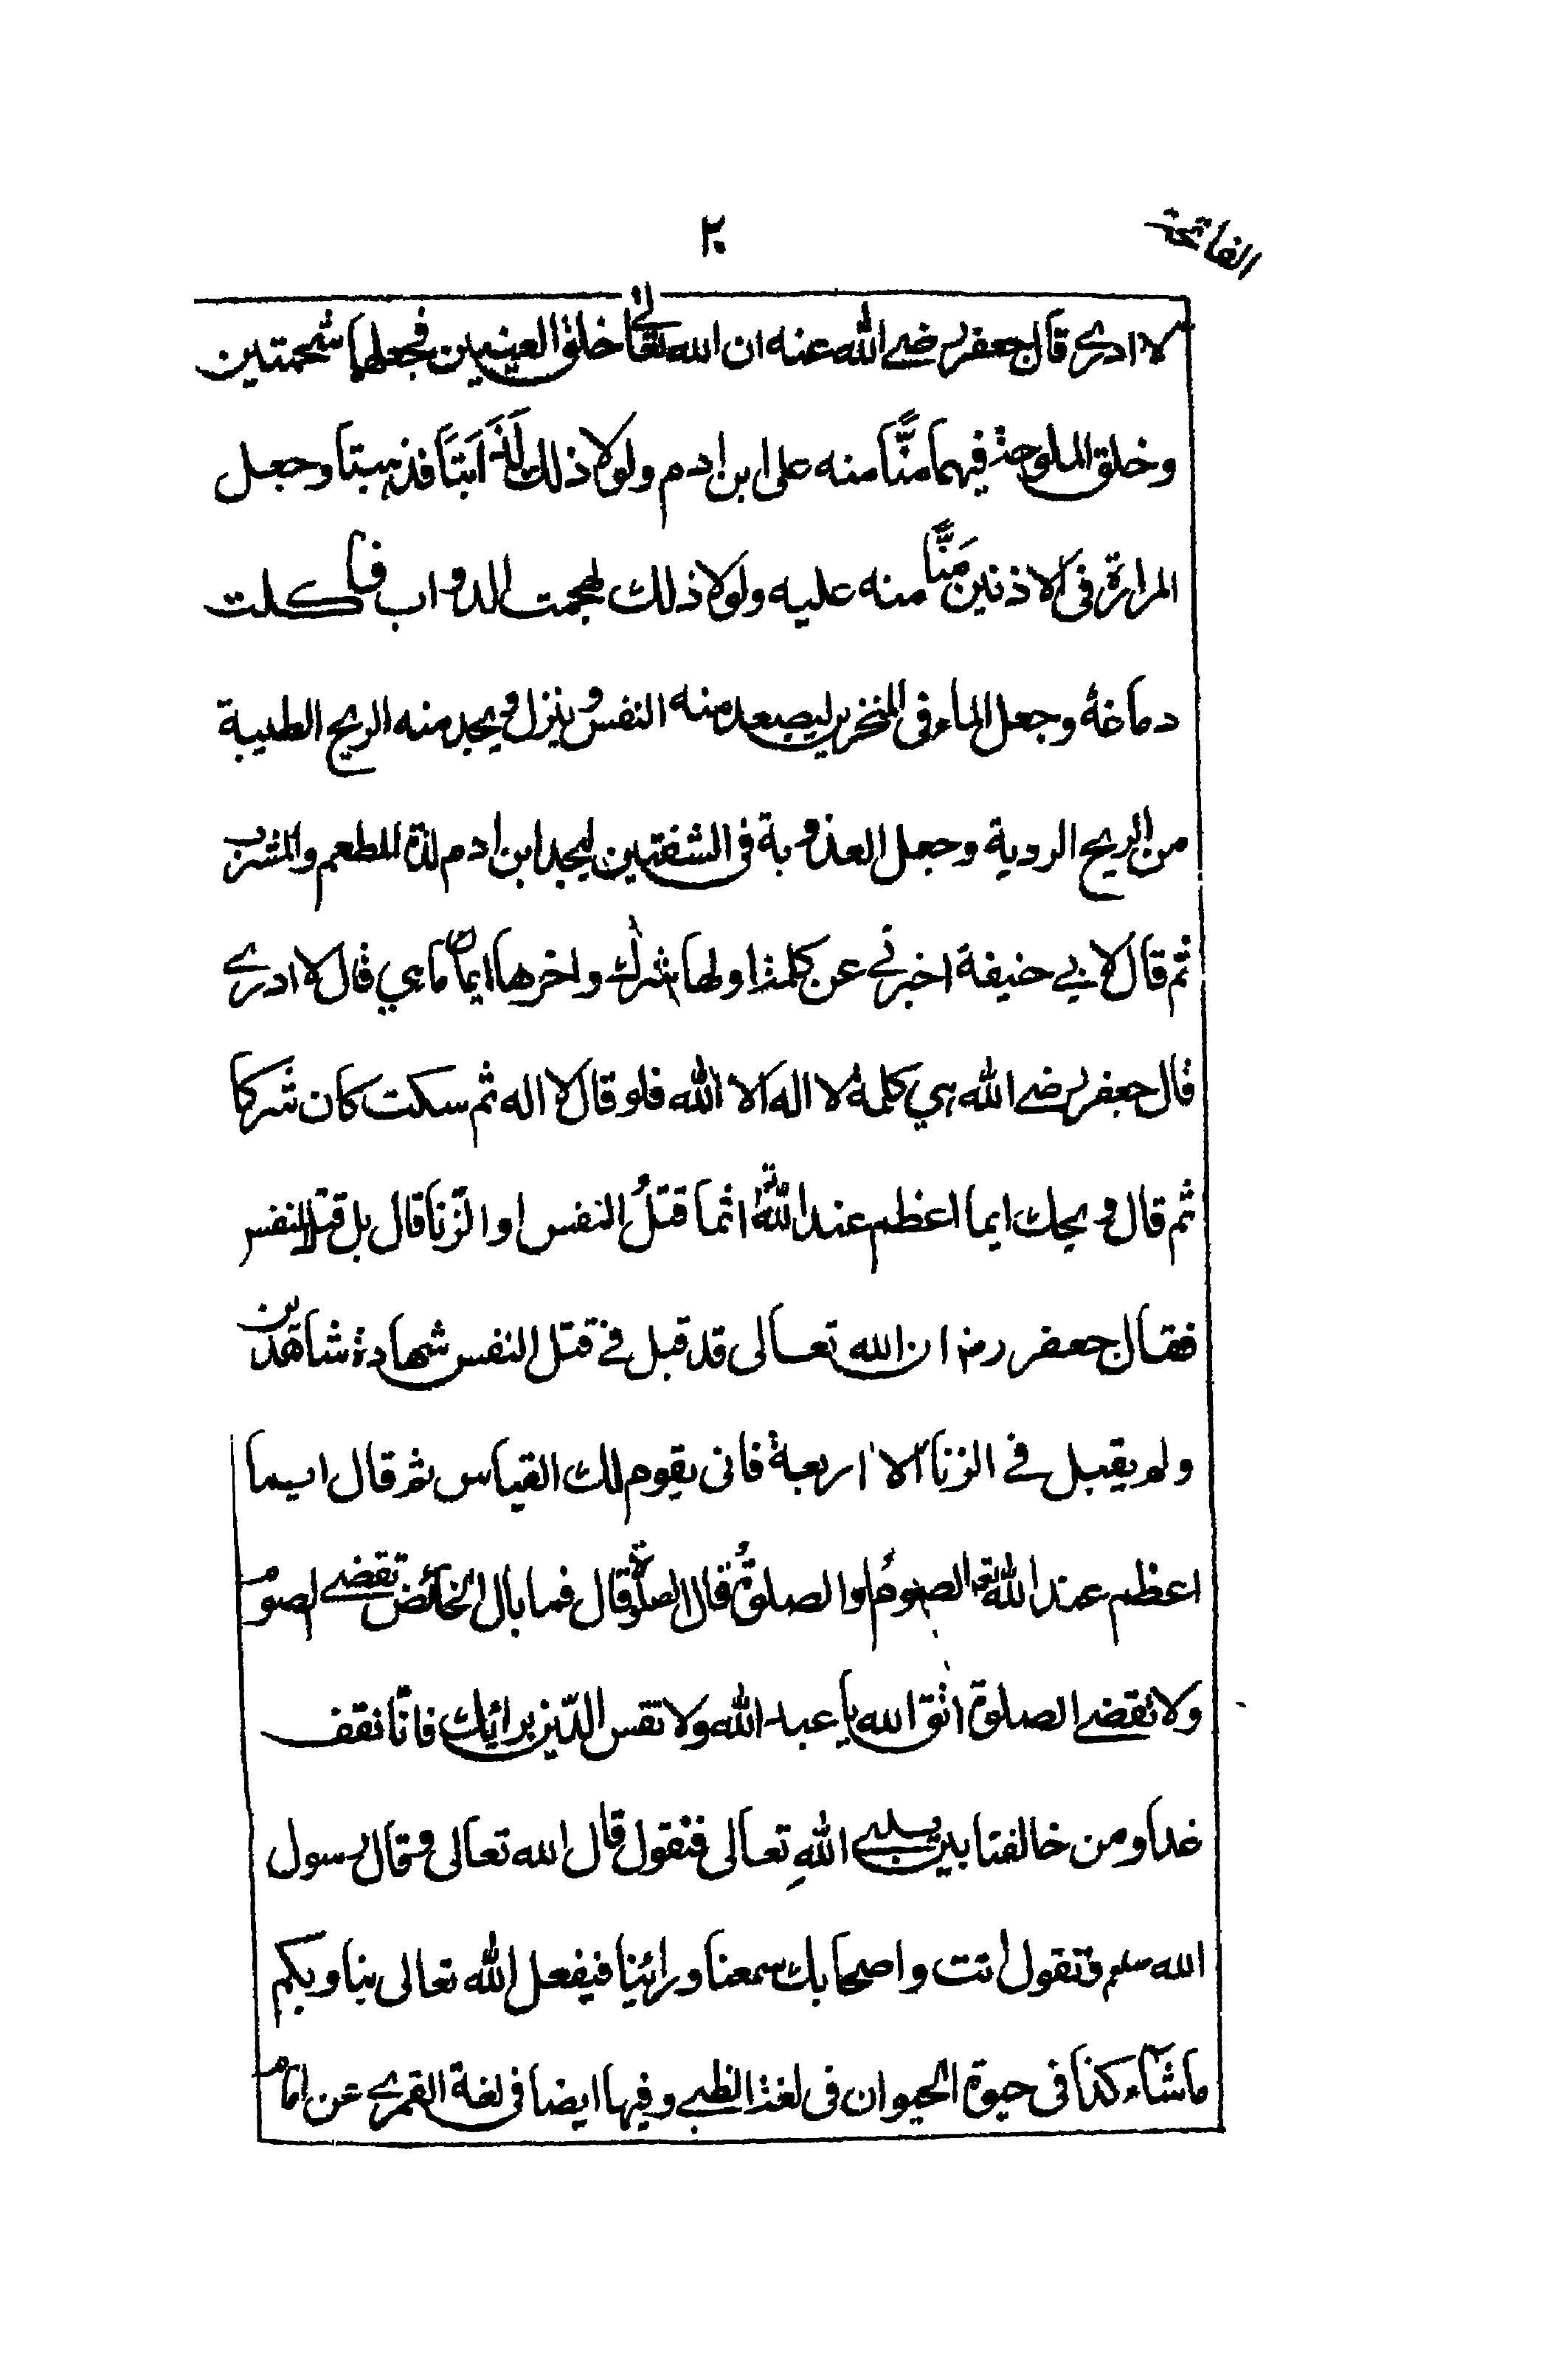 الفاتحة
٢٠
لا ادري قال جعفر رضي الله عنه ان الله تعالى خلق العينين فجعلها شحمتين
وخلق الملوحة فيهما منّاً منه على ابن ادم ولولا ذلك لذابتا فذهبتا وجعل
المرارة في الاذنين مَنّاً منه عليه ولولا ذلك لهجمت الدواب فاكلت
دماغه وجعل الماء في المنخرين ليصعد منه النفس وينزل ويجد منه الريح الطيبة
من الريح الردية وجعل العذوبة في الشفتين ليجد ابن ادم لذة المطعم والمشرب
ثم قال لابي حنيفة اخبرني عن كلمة اولها شرك واخرها ايمان ما هي قال لا ادري
قال جعفر رضي الله هي كلمة لا اله الا الله فلو قال لا اله ثم سكت كان شركا
ثم قال ويحك ايما اعظم عند الله اثما قتلُ النفس او الزّنا قال بل قتل النفس
فقال جعفر رضه ان الله تعالى قد قبل في قتل النفس شهادة شاهدين
ولم يقبل في الزنا الا اربعة فانى يقوم لك القياس ثم قال ايما
اعظم عند الله تعه الصومُ او الصلوةُ قال الصلوة قال فما بال الحائض تقضي الصوم
ولا تقضي الصلوة اتق الله يا عبد الله ولا تقس الدّين برائيك فانّا نقف
غدا ومن خالفنا بين يدي اللهِ تعالى فنقول قال الله تعالى وقال رسول
الله صلعم وتقول انت واصحابك سمعنا ورائينا فيفعل الله تعالى بنا وبكم
ما شاء كذا في حيوة الحيوان في لغة الظبي وفيها ايضا في لغة القمري عن امام